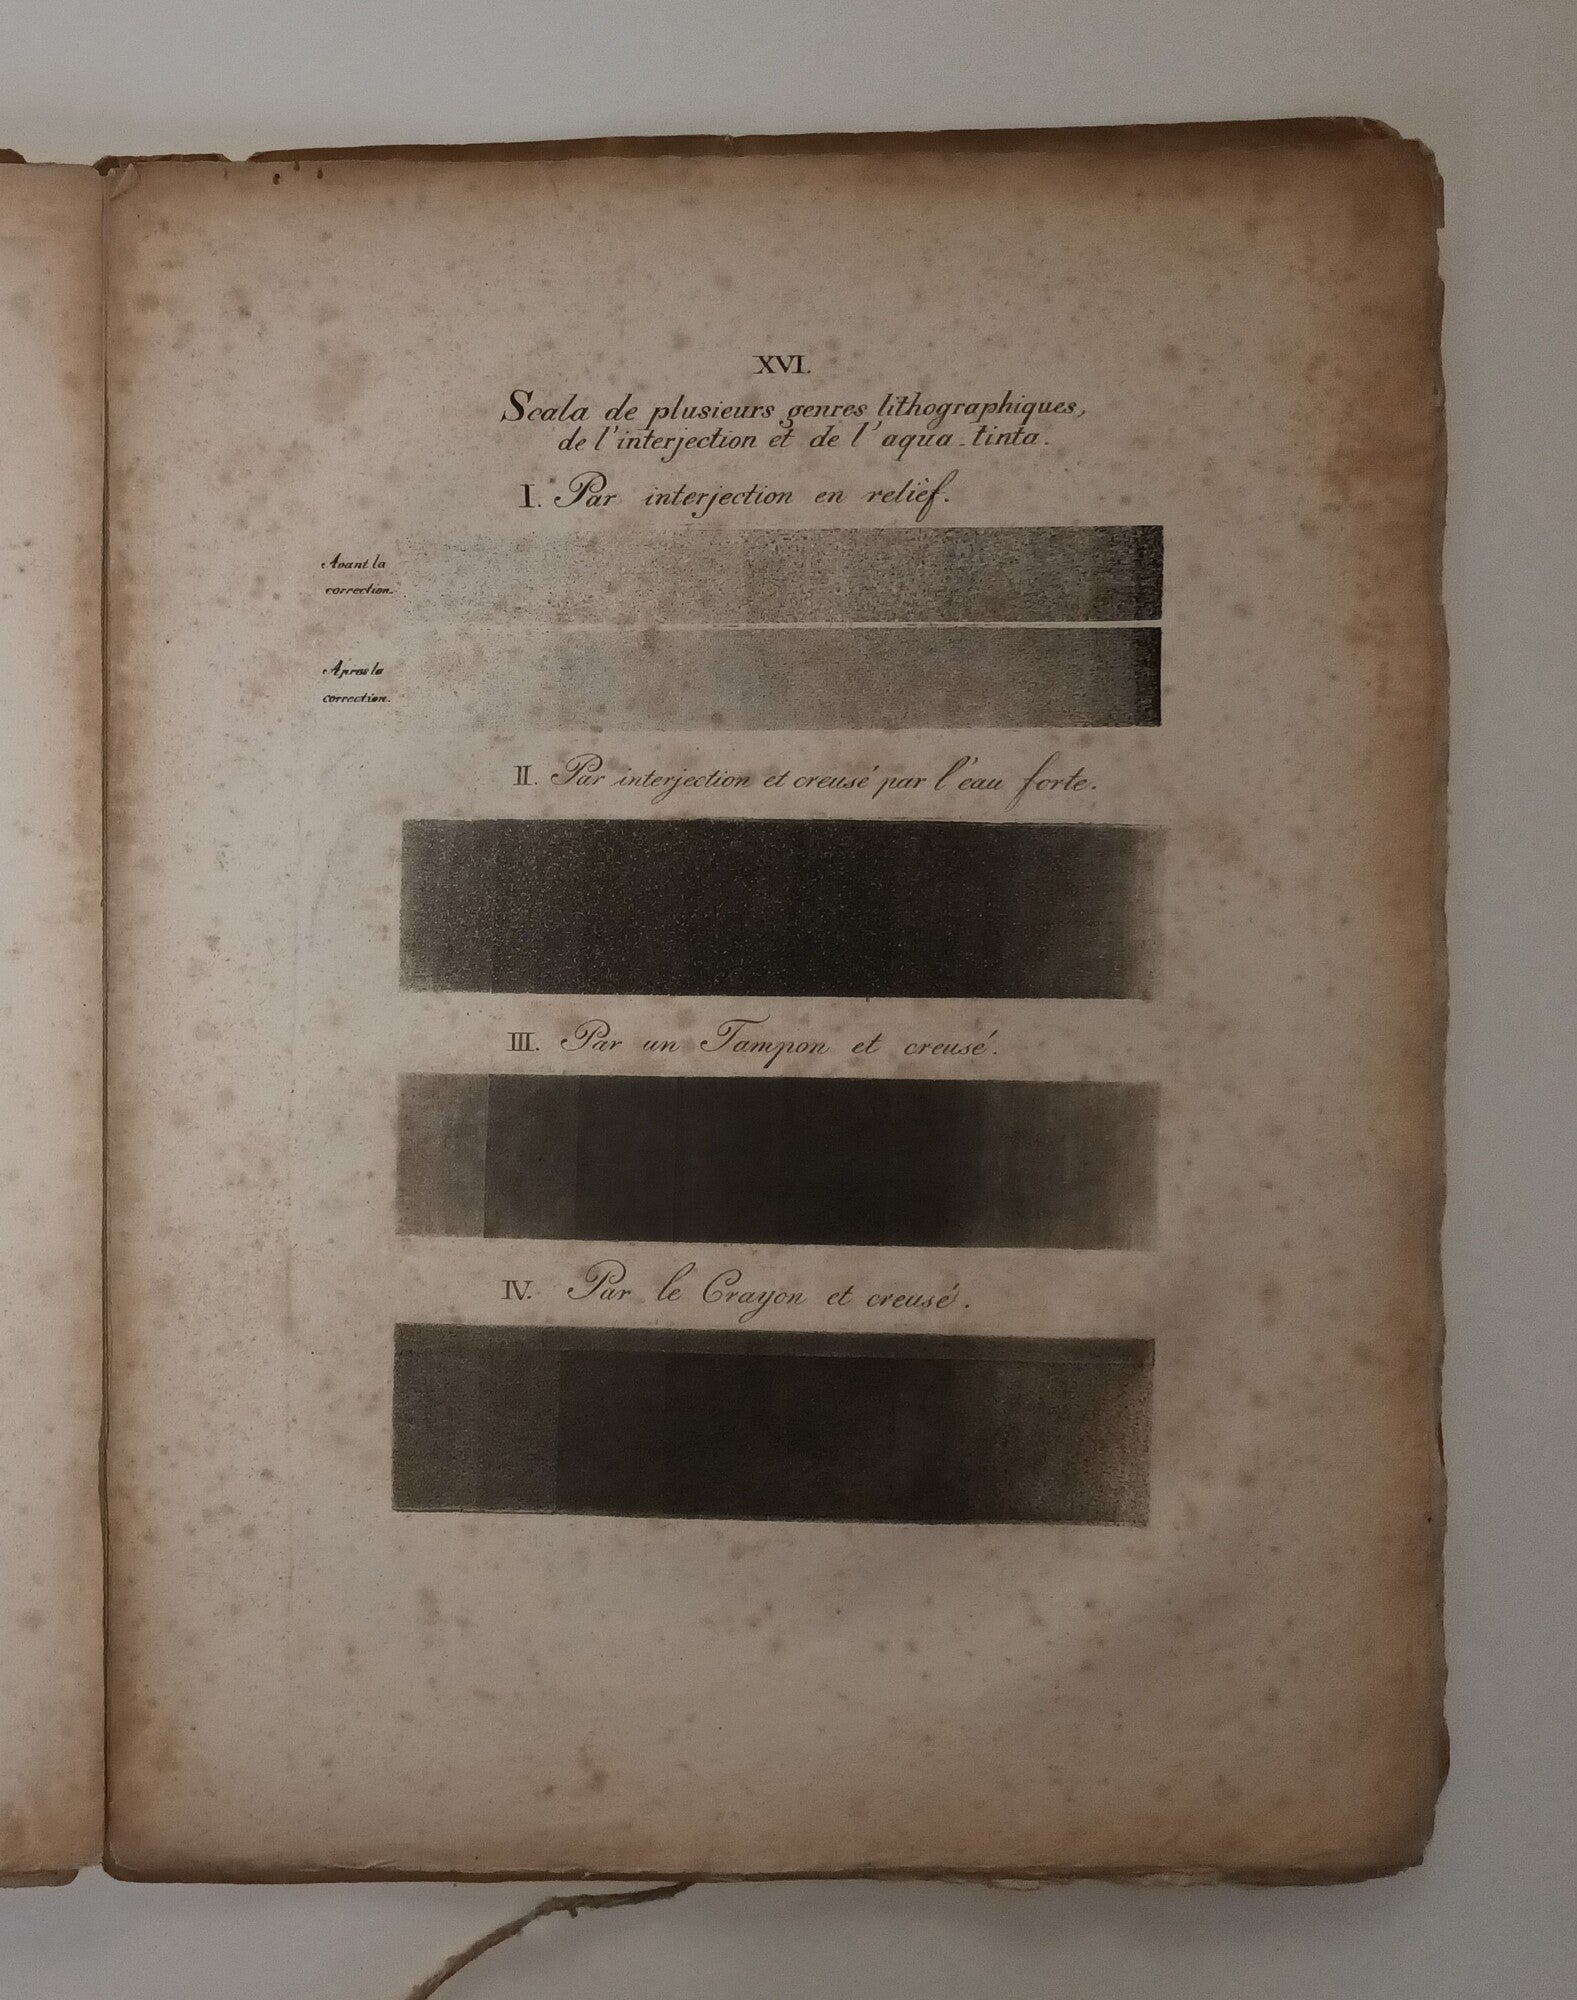 XVI.
Scala de plusieurs genres lithographiques,
de l'interjection et de l'aqua-tinta.
I. Par interjection en relief.
Avant la
correction.
Après la
correction.
II. Par interjection et creusé par l'eau forte.
III. Par un Tampon et creusé.
IV. Par le Crayon et creusé.